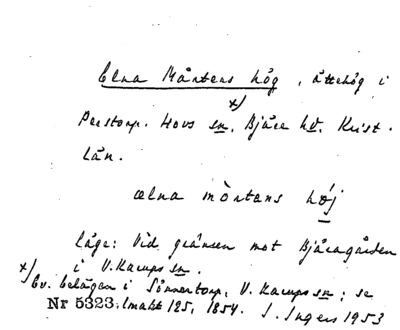 Elna Mårtens hög, ättehög i
x)
Perstorp. Hovs sn, Bjäre hd. Krist.
Län.
ælna mòrtans høj
Läge: Vid gränsen mot Bjäragården
i V. Karups sn.
x) Ev. belägen i Sönnertorp, V. Karups sn; se
Nr 5323. lmakt 125, 1854. I. Ingers 1953